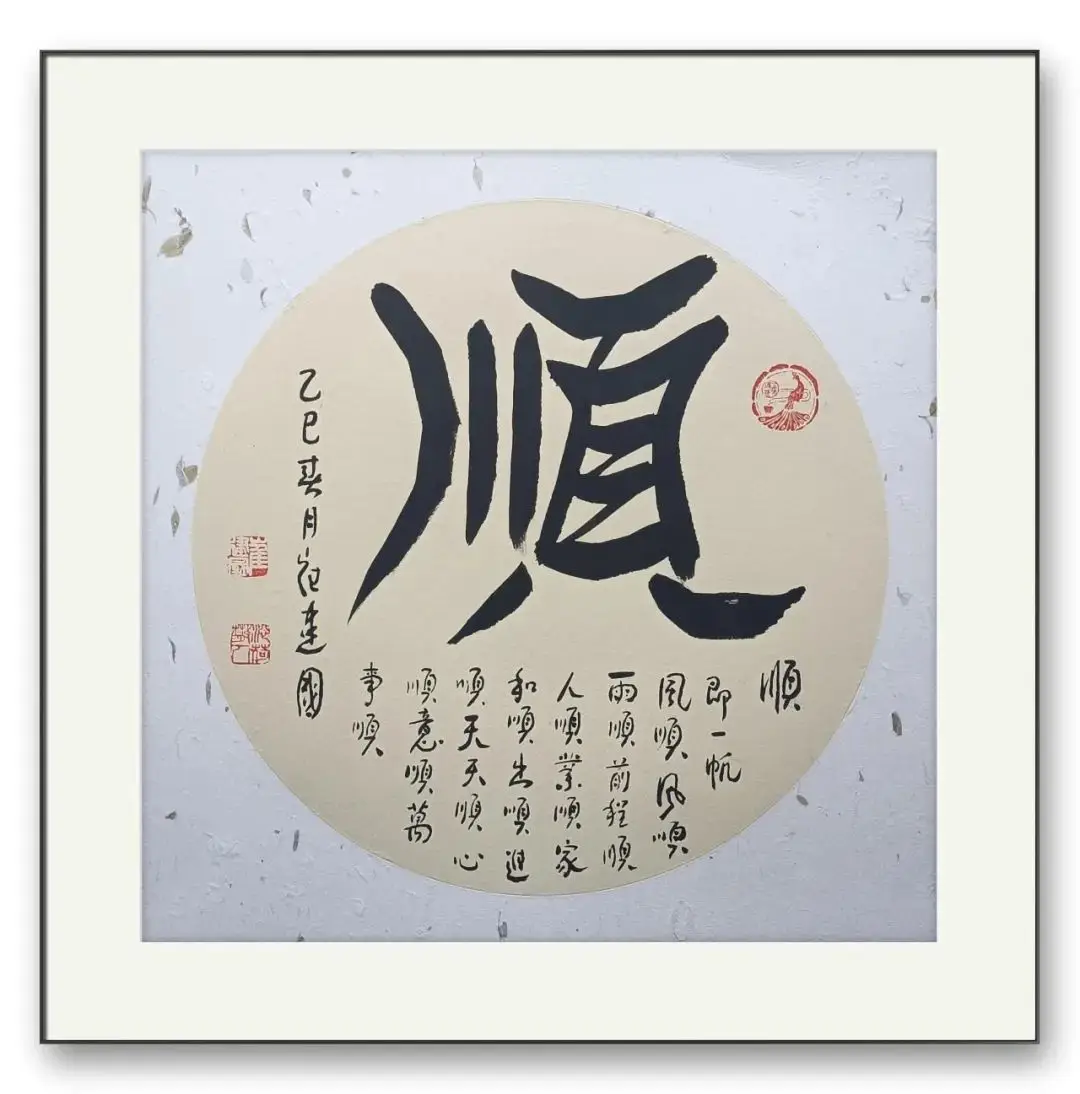 順
順
即一帆
風順風順
雨順前程順
人順業順家
和順出順進
順天天順心
順意順萬
事順
乙巳春月崔建國